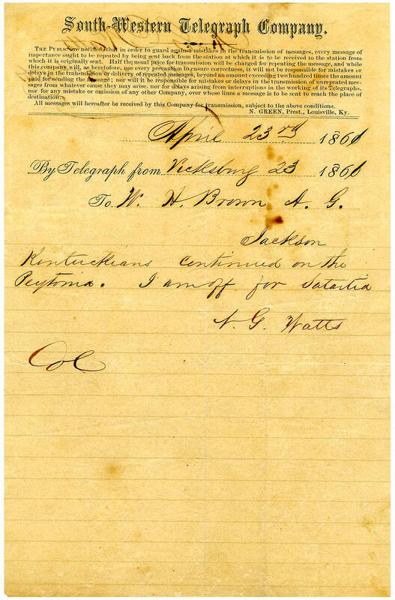 South-Western Telegraph Company.
THE PUBLIC are notified that in order to guard against mistakes in the transmission of messages, every message of
importance ought to be repeated by being sent back from the station at which it is to be received to the station from
which it is originally sent. Half the usual price for transmission will be charged for repeating the message, and while
this company will, as heretofore, use every precaution to ensure correctness, it will not be responsible for mistakes or
delays in the transmission or delivery of repeated messages, beyond an amount exceeding two hundred times the amount
paid for sending the message; nor will it be responsible for mistakes or delays in the transmission of unrepeated mes-
sages from whatever cause they may arise, nor for delays arising from interruptions in the working of its Telegraphs,
nor for any mistake or omission of any other Company, over whose lines a message is to be sent to reach the place of
destination.
All messages will hereafter be received by this Company for transmission, subject to the above conditions.
N. GREEN, Prest., Louisville, Ky.
April 23rd 1861
By Telegraph from Vicksburg 23 1861
To W. H. Brown A. G.
Jackson
Kentuckians continued on the
Peytonia. I am off for Satartia
A. G. Watts
Col